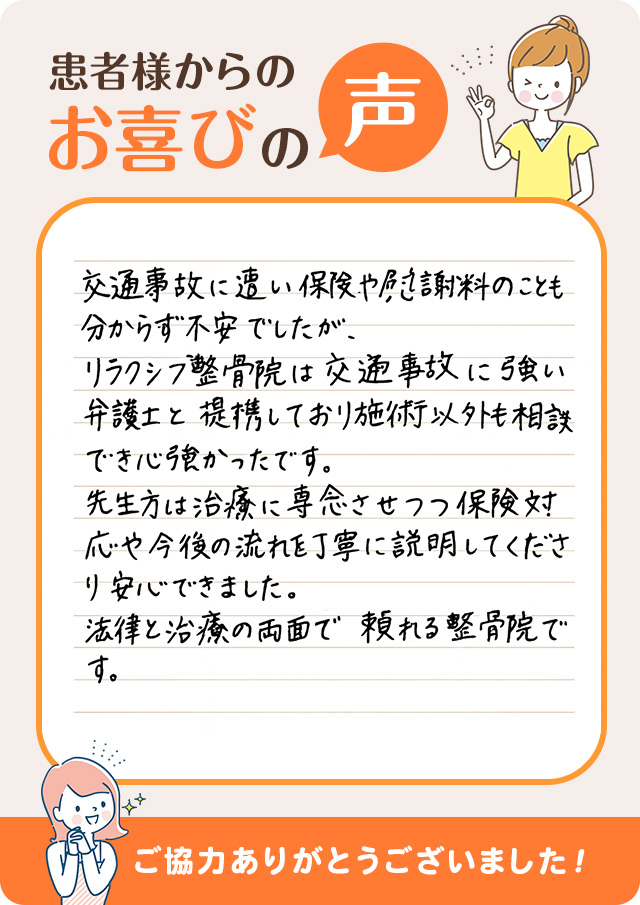 患者様からの
お喜びの声
交通事故に遭い保険や慰謝料のことも
分からず不安でしたが、
リラクシブ整骨院は交通事故に強い
弁護士と提携しており施術以外も相談
でき心強かったです。
先生方は治療に専念させつつ保険対
応や今後の流れを丁寧に説明してくださ
り安心できました。
法律と治療の両面で 頼れる整骨院で
す。
ご協力ありがとうございました!